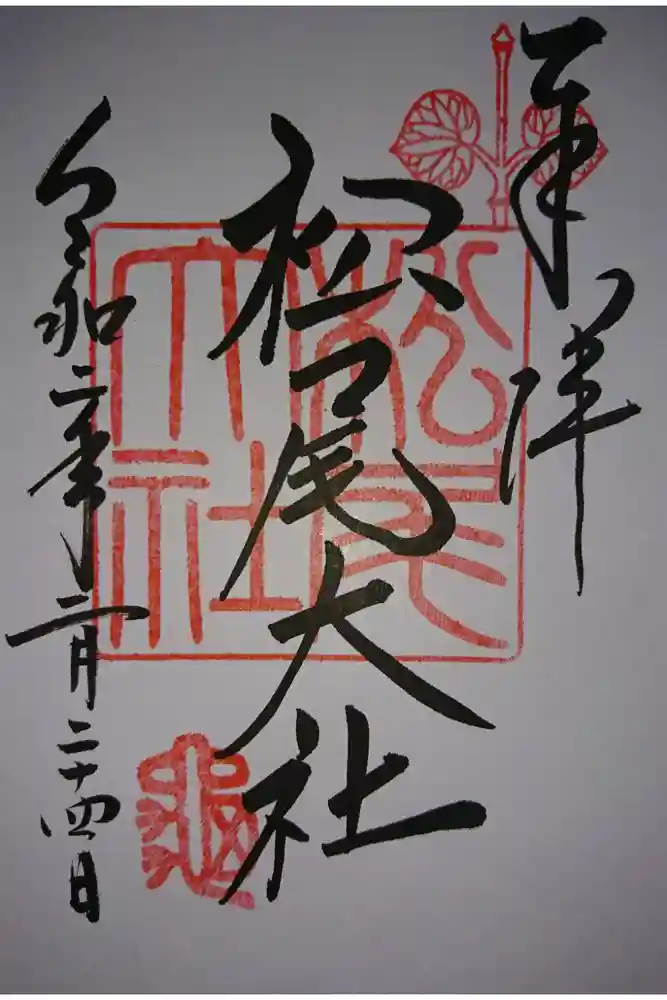 奉拝
松尾大社
令和二年二月二十四日
松尾大社
亀